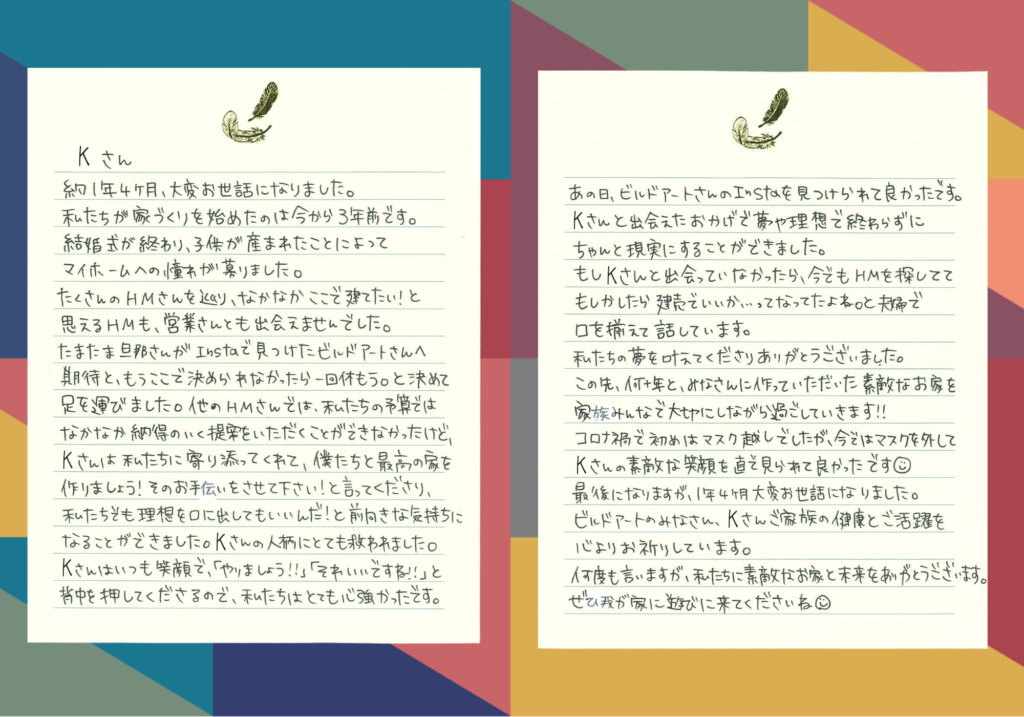 Kさん
約1年4ヶ月、大変お世話になりました。
私たちが家づくりを始めたのは今から3年前です。
結婚式が終わり、子供が産まれたことによって
マイホームへの憧れが募りました。
たくさんのHMさんを巡り、なかなかここで建てたい!と
思えるHMも、営業さんとも出会えませんでした。
たまたま旦那さんがInstaで見つけたビルドアートさんへ
期待と、もうここで決められなかったら一回休もう。と決めて
足を運びました。他のHMさんでは、私たちの予算では
なかなか納得のいく提案をいただくことができなかったけど、
Kさんは私たちに寄り添ってくれて、僕たちと最高の家を
作りましょう!そのお手伝いをさせて下さい!と言ってくださり、
私たちでも理想を口に出してもいいんだ!と前向きな気持ちに
なることができました。Kさんの人柄にとても救われました。
Kさんはいつも笑顔で、「やりましょう!!」「それいいですね!!」と
背中を押してくださるので、私たちはとても心強かったです。
あの日、ビルドアートさんのInstaを見つけられて良かったです。
Kさんと出会えたおかげで夢や理想で終わらずに
ちゃんと現実にすることができました。
もしKさんと出会っていなかったら、今でもHMを探してて
もしかしたら建売でいいか…ってなってたよね。と夫婦で
口を揃えて話しています。
私たちの夢を叶えてくださりありがとうございました。
この先、何十年と、みなさんに作っていただいた素敵なお家を
家族みんなで大切にしながら過ごしていきます!!
コロナ禍で初めはマスク越しでしたが、今ではマスクを外して
Kさんの素敵な笑顔を直で見られて良かったです☺
最後になりますが、1年4ヶ月大変お世話になりました。
ビルドアートのみなさん、Kさんご家族の健康とご活躍を
心よりお祈りしています。
何度も言いますが、私たちに素敵なお家と未来をありがとうございます。
ぜひ我が家に遊びに来てくださいね☺